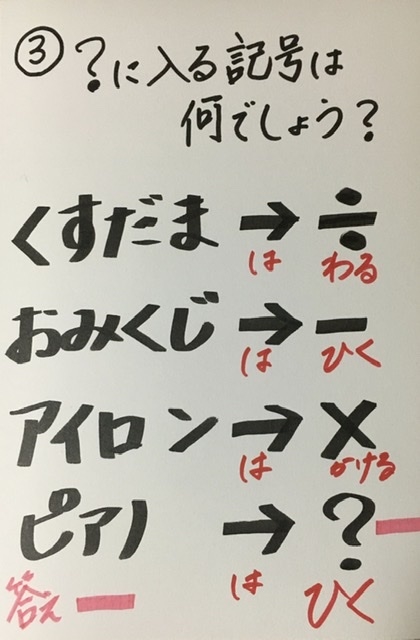 ③ ?に入る記号は
何でしょう?
くすだま → ÷
は わる
おみくじ → −
は ひく
アイロン → ×
は かける
ピアノ → ? −
は ひく
答え −